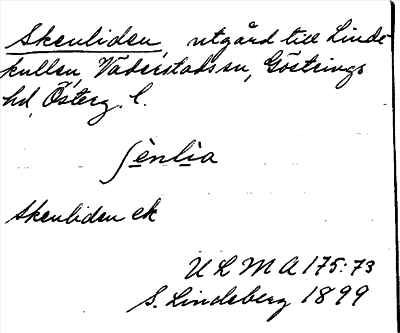 Skenliden, utgård till Linde-
kullen, Väderstads sn, Göstrings
hd, Österg. l.
ʃènlìa
Skenliden ek
U L M A 175:73
S. Lindeberg 1899